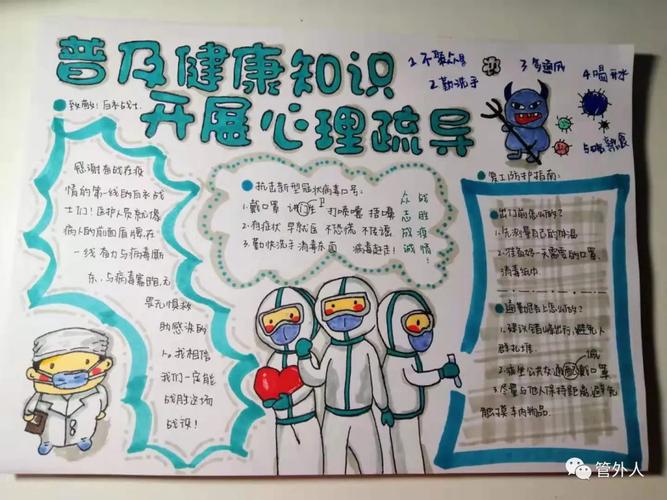 普及健康知识
开展心理疏导
1.不聚众
2.勤洗手
3.多通风
4.喝开水
5.吃熟食
致敬!白衣战士.
感谢奋战在疫
情的第一线的白衣战
士们!医护人员就像
病人的前面盾牌在
一线奋力与病毒厮
杀,与病毒赛跑无
畏无惧救
助感染的
人。我相信
我们一定能
战胜这场
战役!
抗击新型冠状病毒口号:
1.戴口罩 讲卫生 打喷嚏 捂嘴
2.有症状 早就医 不恐慌 不传谣
3.勤快洗手 消毒东西 病毒赶走!
众志成城
战胜疫情!
员工防护指南:
出门前怎么做?
1.先测量自己的体温
2.准备好一天需要的口罩,
消毒纸巾
通勤路上怎么做?
1.建议错峰出行,避免人
群扎堆.
2.乘坐公共交通配戴口罩
3.尽量与他人保持距离,避免
触摸车内物品.
管外人